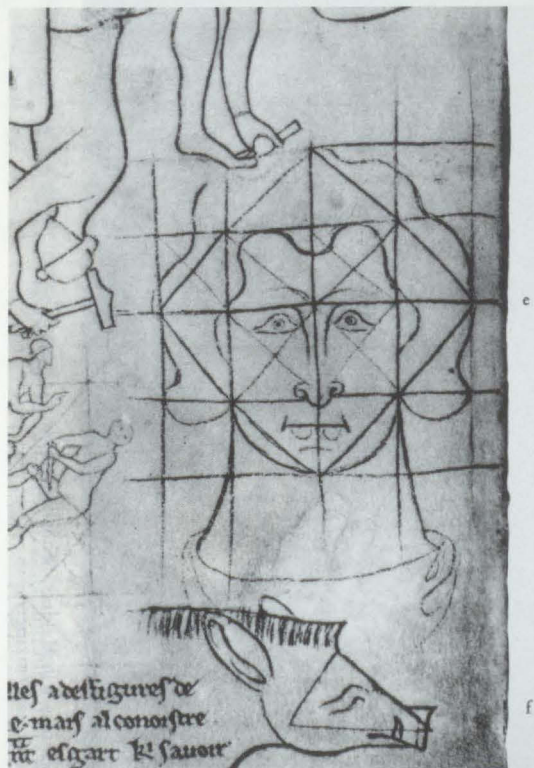 e
lles a des figures de
e· mais al conoistre
esgart ki savoir
f